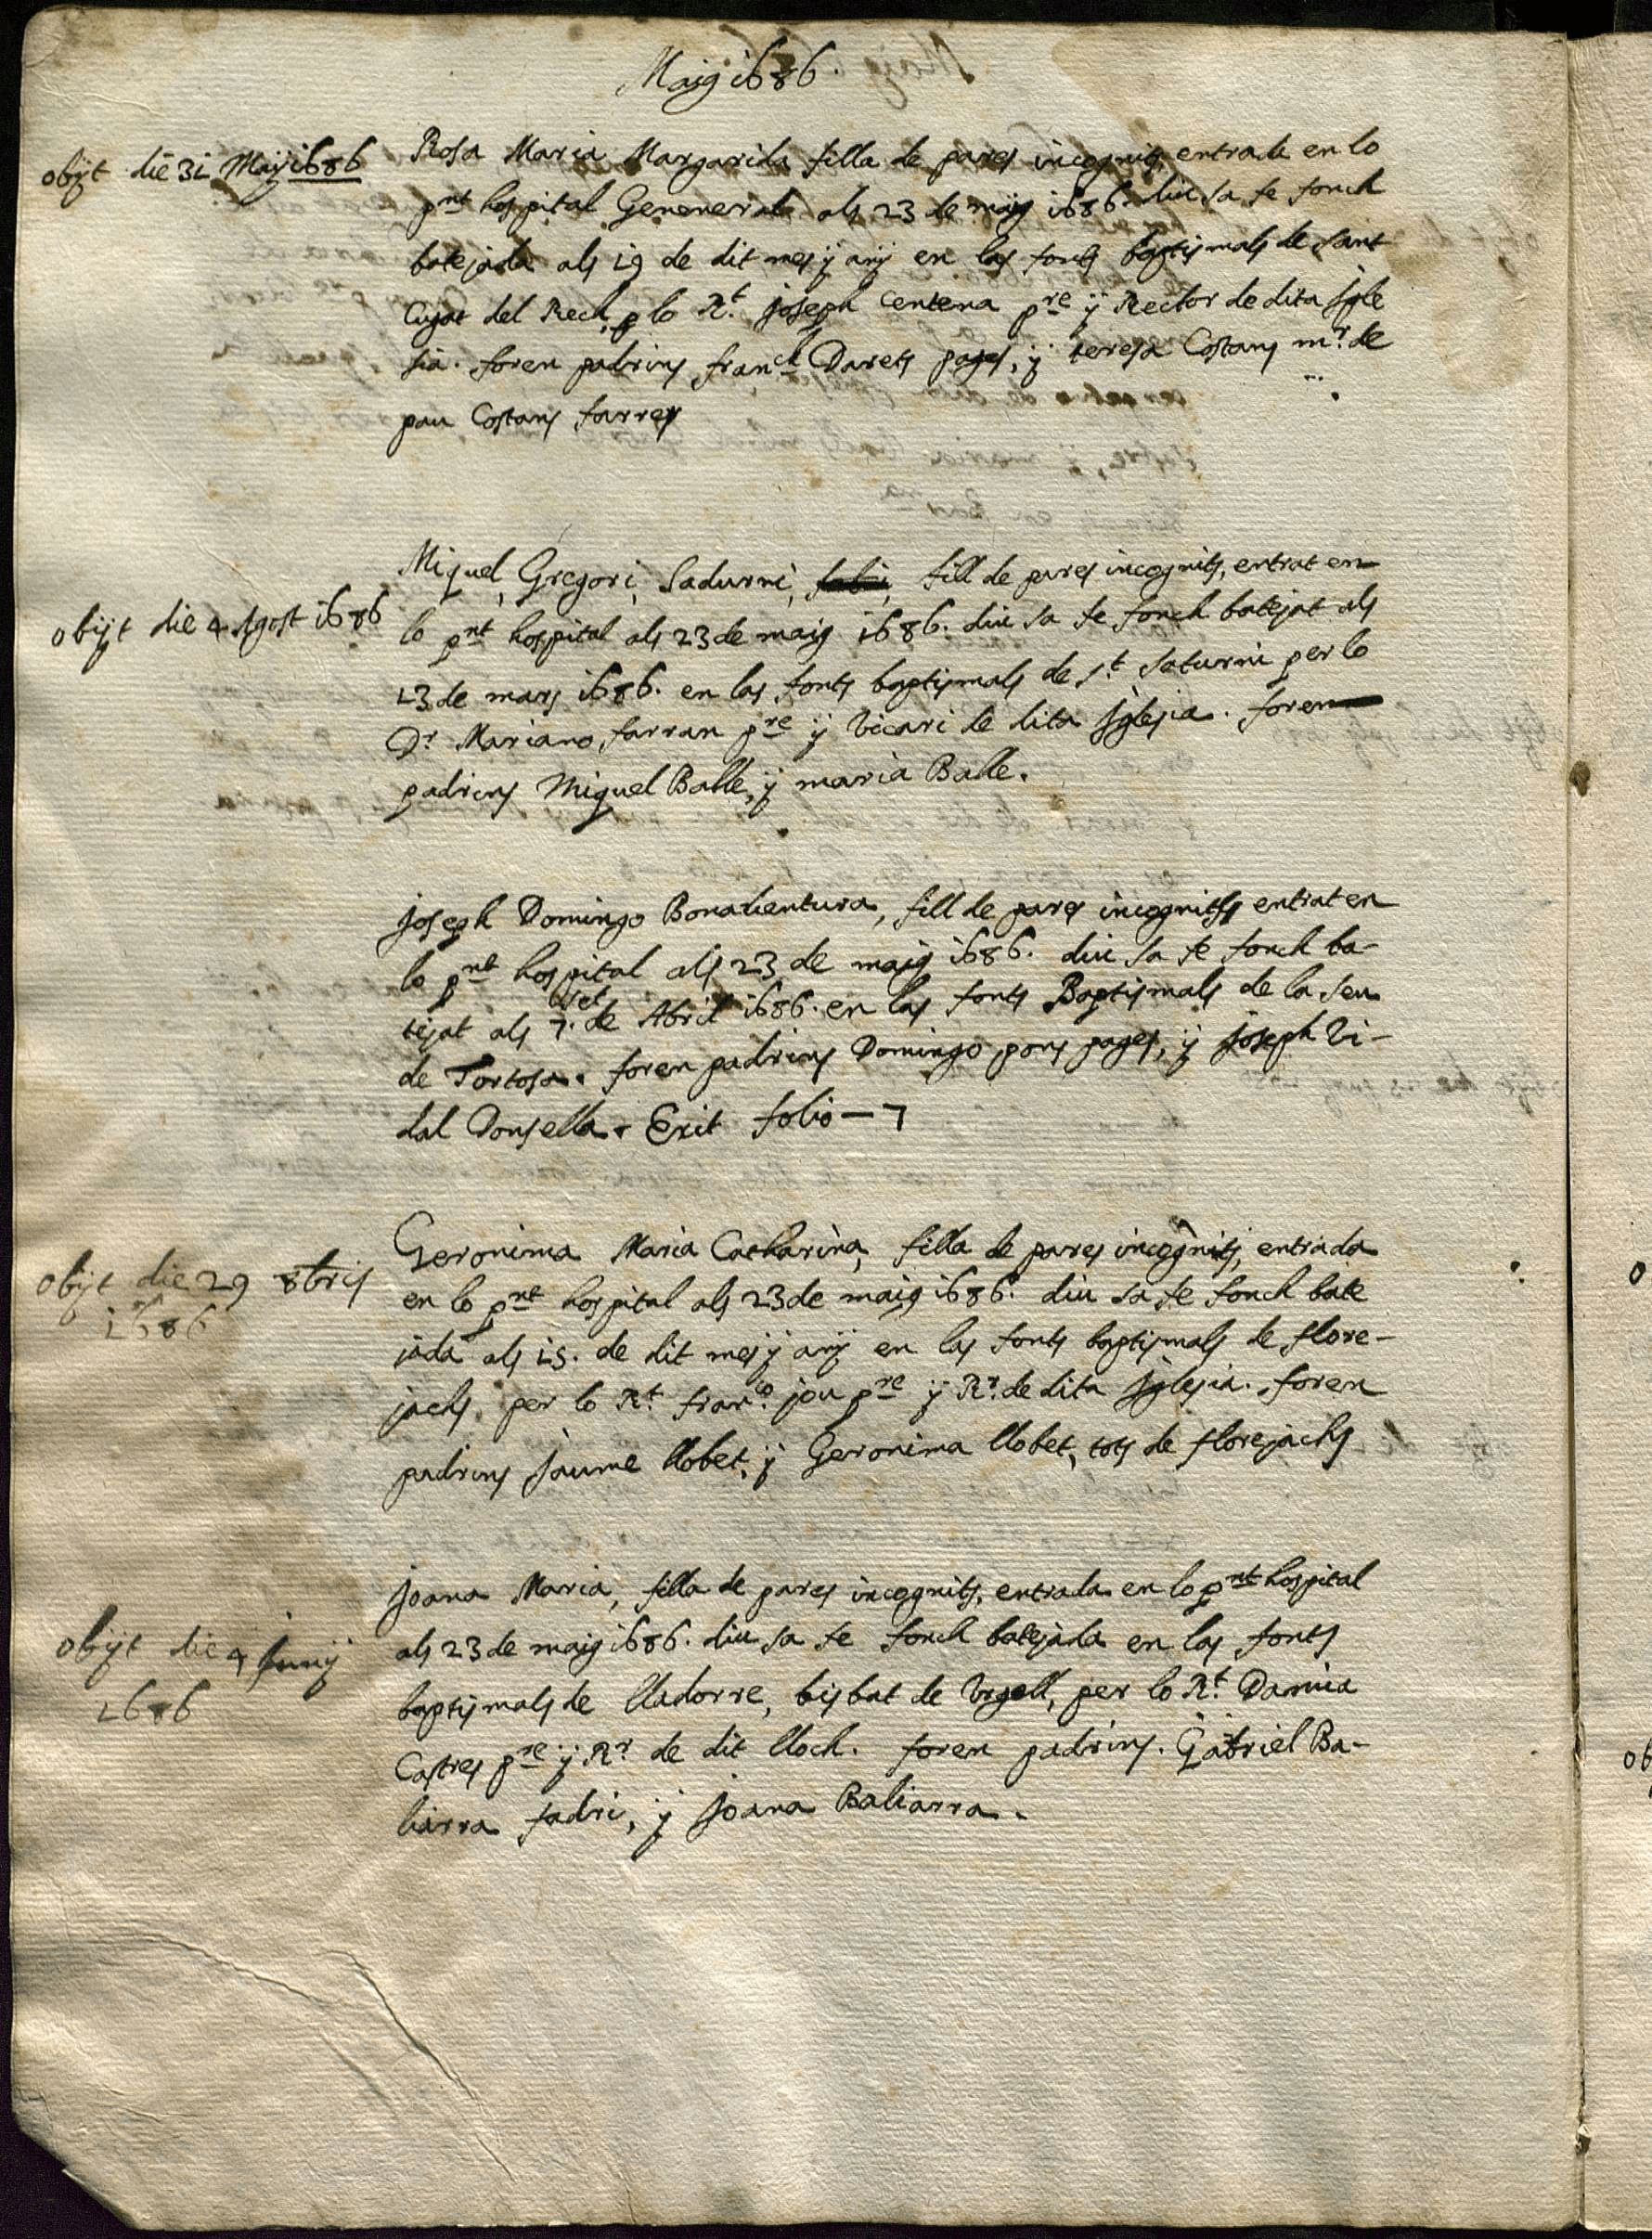 Maig 1686.
obijt die 31 Maij 1686
Rosa Maria Margarida filla de pares incognits, entrada en lo
pnt hospital Genenerals als 23 de maig 1686. diu sa fe fonch
batejada als 19 de dit mes ÿ anÿ en las fonts baptismals de Sant
Cugat del Rech, p lo Rt. Joseph Centena pre ÿ Rector de dita Igle
sia. foren padrins franch Darets pages, ÿ teresa Costans mr. de
pau Costans farrer
obijt die 4 Agost 1686
Miquel, Gregori, Sadurni, fill de pares incognits, entrat en
lo pnt hospital als 23 de maig 1686. diu sa fe fonch batejat als
13 de mars 1686. en las fonts baptismals de St Saturni per lo
Dr Mariano farran pre ÿ Vicari de dita Iglesia. foren
padrins Miquel Balle, ÿ maria Balle.
Joseph Domingo Bonaventura, fill de pares incognits entrat en
lo pnt hospital als 23 de maig 1686. diu sa fe fonch ba-
set
tejat als 7. de Abril 1686. en las fonts Baptismals de la Seu
de Tortosa. foren padrins Domingo pons pages, ÿ Joseph Vi-
dal Donsella. Exit folio - 7
obijt die 29 8bris
1686
Geronima Maria Catharina, filla de pares incognits, entrada
en lo pnt hospital als 23 de maig 1686. diu sa fe fonch bate
jada als 15. de dit mes ÿ anÿ en las fonts baptismals de flore-
jachs, per lo Rt. franco. jou pre ÿ Rr. de dita Iglesia. foren
padrins Jaume llobet, ÿ Geronima llobet, tots de florejachs
obijt die 4 Junij
1686
Joana Maria, filla de pares incognits, entrada en lo pnt hospital
als 23 de maig 1686. diu sa fe fonch batejada en las fonts
baptismals de lladorre, bisbat de Urgell, per lo Rt. Damia
Castres pre ÿ Rr de dit lloch. foren padrins. Gabriel Ba-
liarra fadri, ÿ Joana Baliarra.